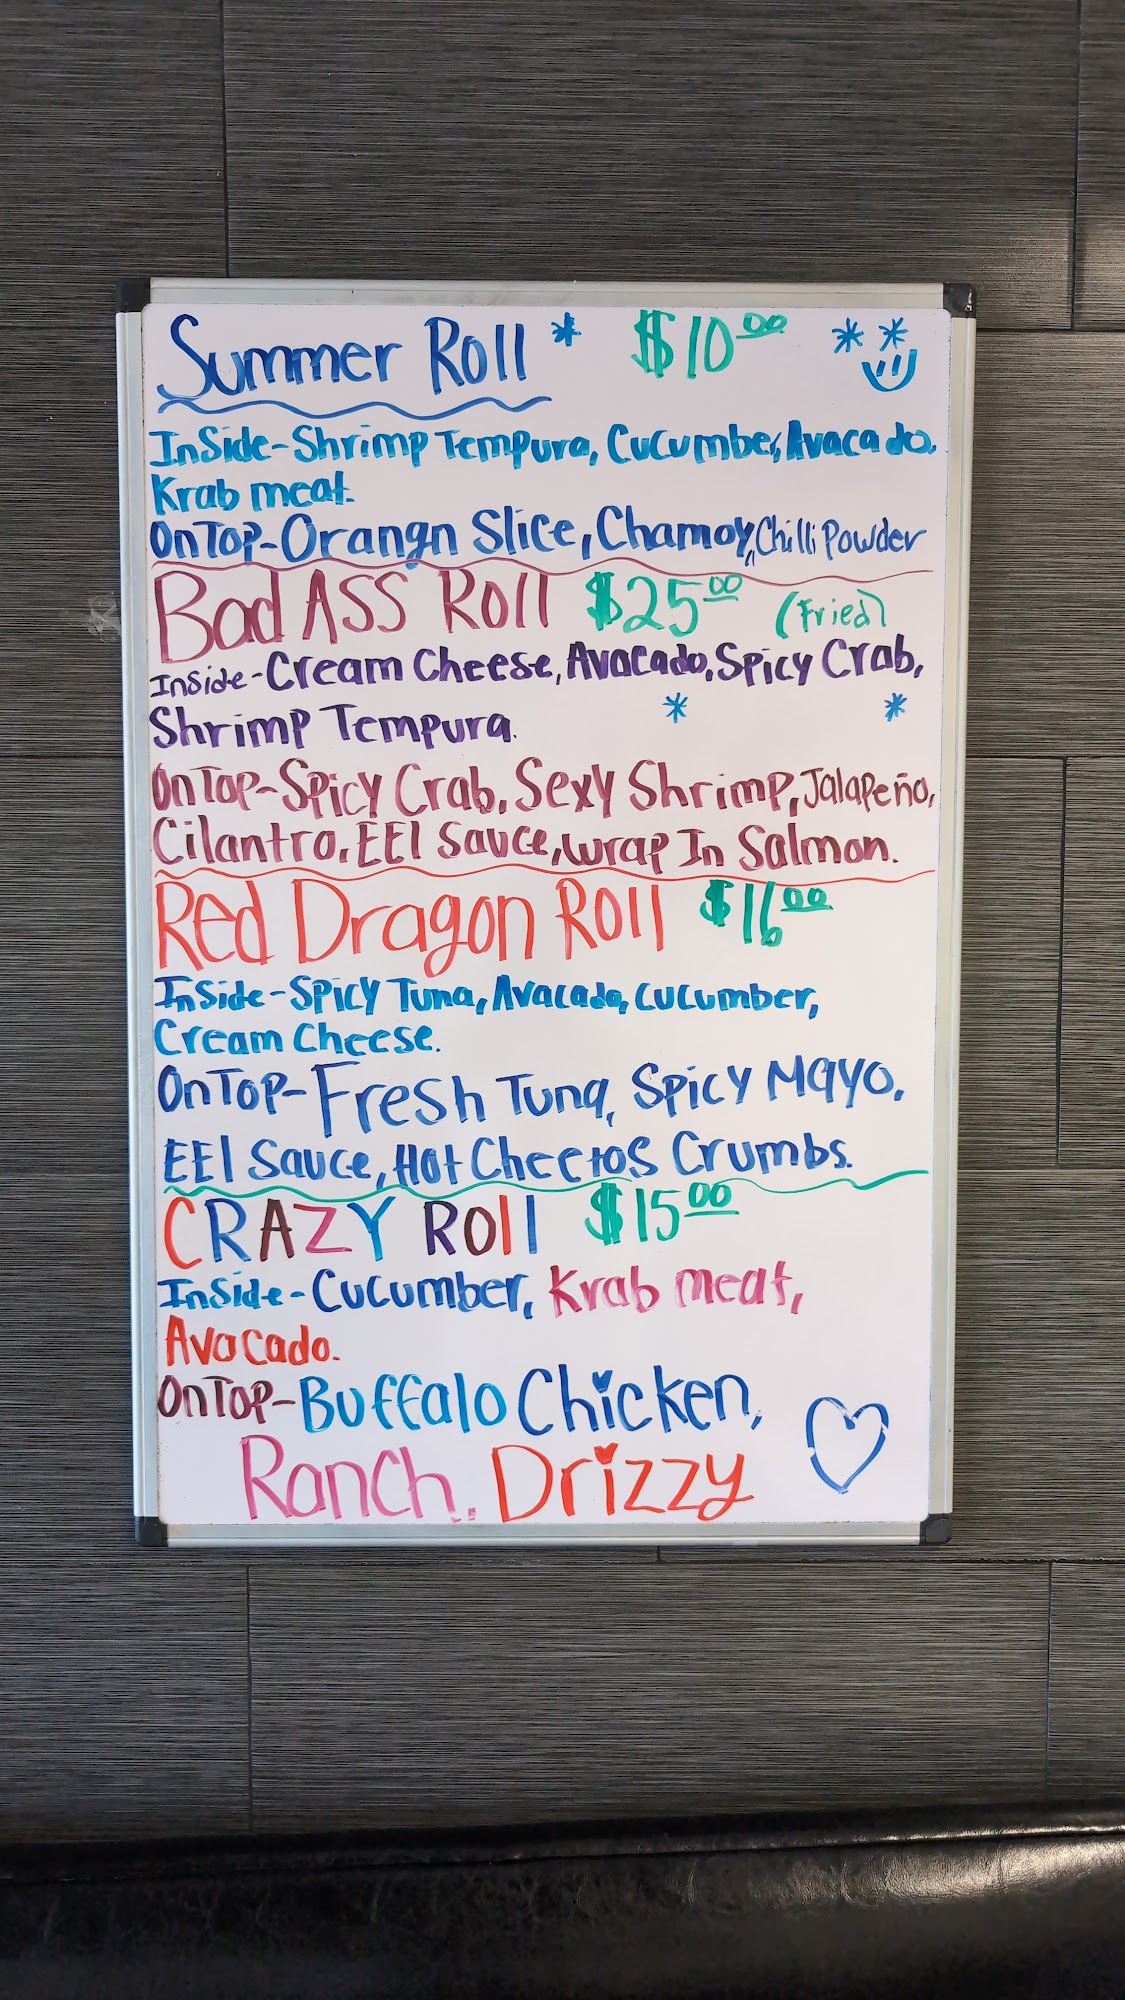 Summer Roll * $10.00 **
Inside-Shrimp Tempura, Cucumber, Avacado,
Krab meat.
OnTop-Orangn Slice, Chamoy, Chilli Powder
Bad ASS Roll $25.00 (Fried)
Inside-Cream Cheese, Avocado, Spicy Crab,
Shrimp Tempura. * *
OnTop-Spicy Crab, Sexy Shrimp, Jalapeño,
Cilantro, EEl Sauce, Wrap In Salmon.
Red Dragon Roll $16.00
Inside-Spicy Tuna, Avacado, Cucumber,
Cream Cheese.
OnTop-Fresh Tuna, Spicy Mayo,
EEl Sauce, Hot Cheetos Crumbs.
CRAZY Roll $15.00
Inside-Cucumber, Krab meat,
Avocado.
OnTop-Buffalo Chicken,
Ranch, Drizzy